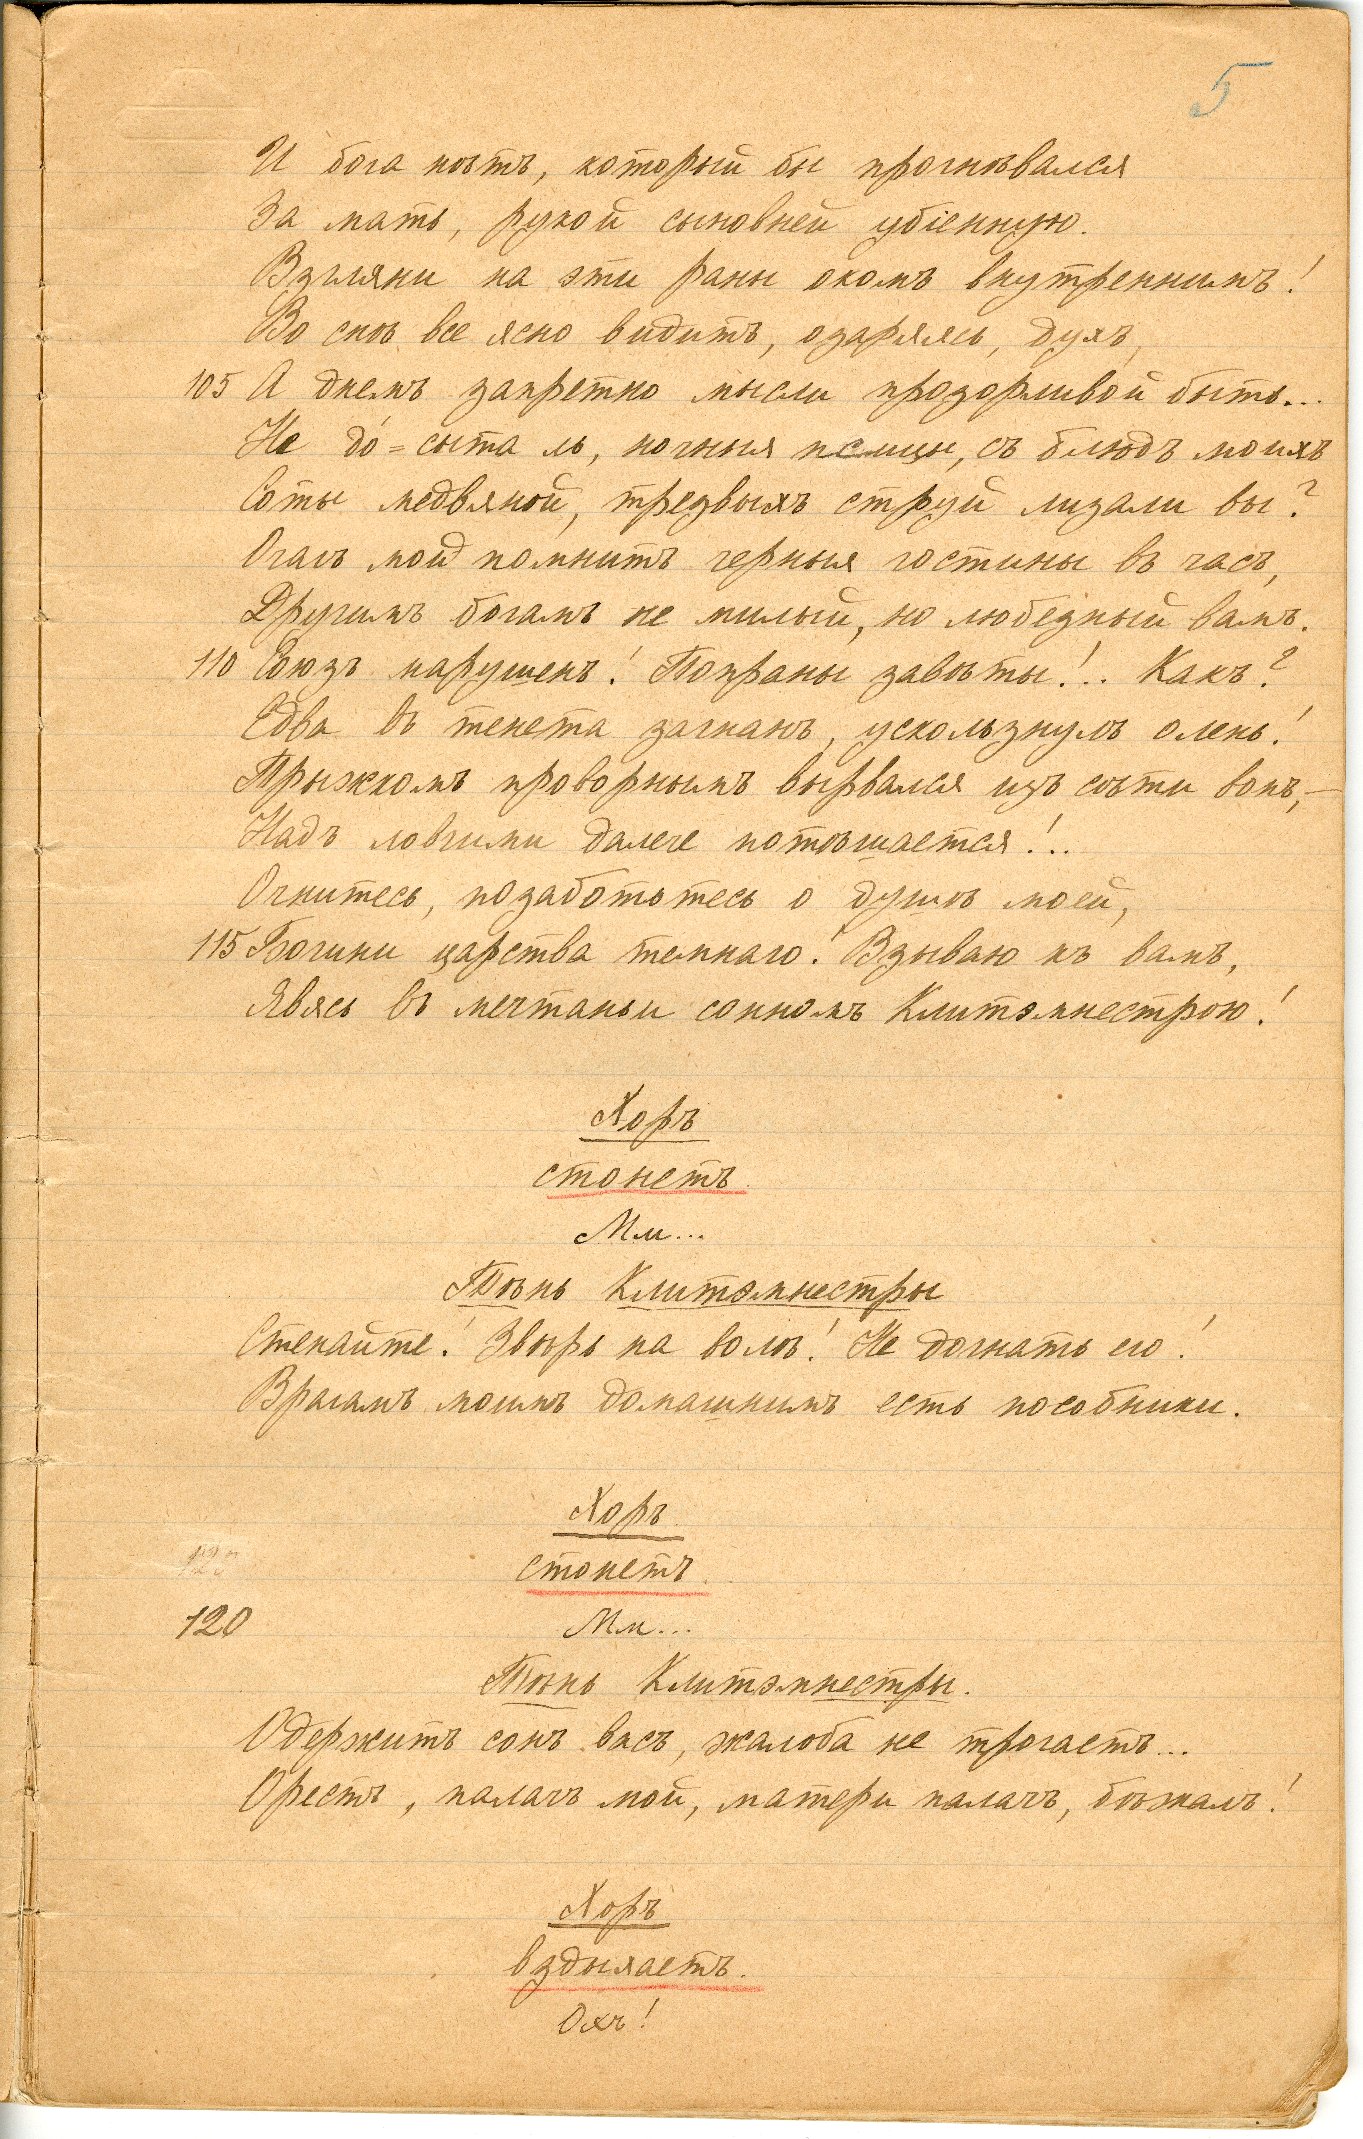 5
И бога нѣтъ, который бы прогнѣвался
За мать, рукой сыновней убіенную.
Взгляни на эти раны окомъ внутреннимъ!
Во снѣ все ясно видитъ, озаряясь, духъ,
105 А днемъ запретно мысли прозорливой быть...
Не до́=сыта ль, ночныя псицы, съ блюдъ моихъ
Соты медвяной, трезвыхъ струй лизали вы?
Очагъ мой помнитъ черныя гостины въ часъ,
Другимъ богамъ не милый, но любезный вамъ.
110 Союзъ нарушенъ! Попраны завѣты!.. Какъ?
Едва въ тенета загнанъ, ускользнулъ олень!
Прыжкомъ проворнымъ вырвался изъ сѣти вонъ,—
Надъ ловчими далече потѣшается!..
Очнитесь, позаботьтесь о душѣ моей,
115 Богини царства темнаго! Взываю къ вамъ,
Явясь въ мечтаньи сонномъ Клитэмнестрою!
Хоръ
стонетъ.
Мм...
Тѣнь Клитэмнестры
Стенайте! Звѣрь на волѣ! Не догнать его!
Врагамъ моимъ домашнимъ есть пособники.
Хоръ
120
стонетъ.
120 Мм...
Тѣнь Клитэмнестры.
Одержитъ сонъ васъ, жалоба не трогаетъ...
Орестъ, палачъ мой, матери палачъ, бѣжалъ!
Хоръ
вздыхаетъ.
Охъ!